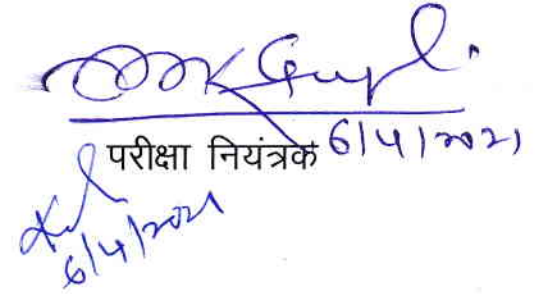 Gupta
परीक्षा नियंत्रक 6/4/2021
6/4/2021